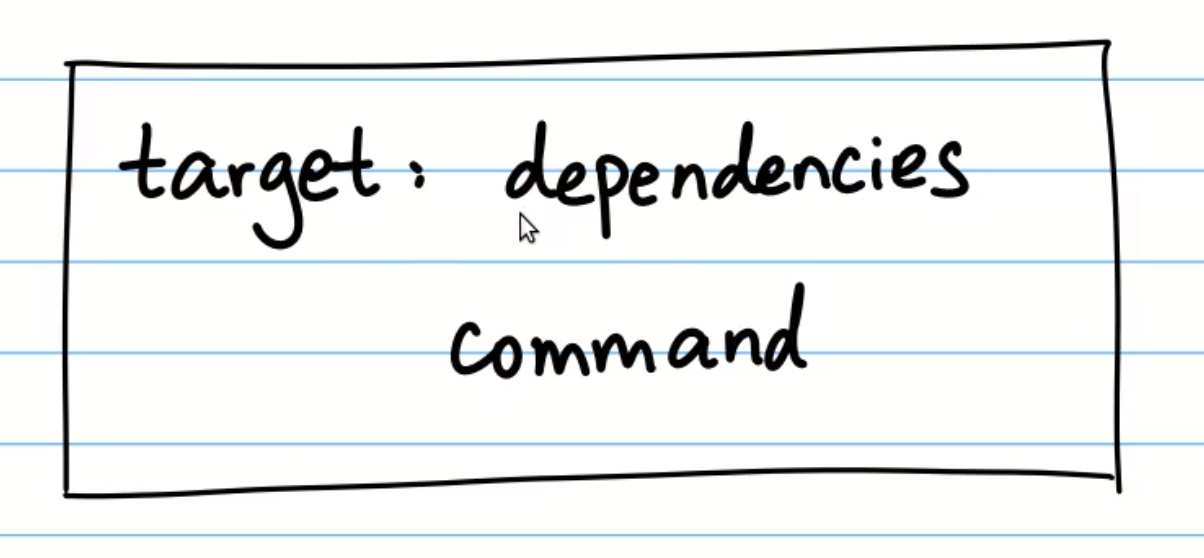 target: dependencies
command